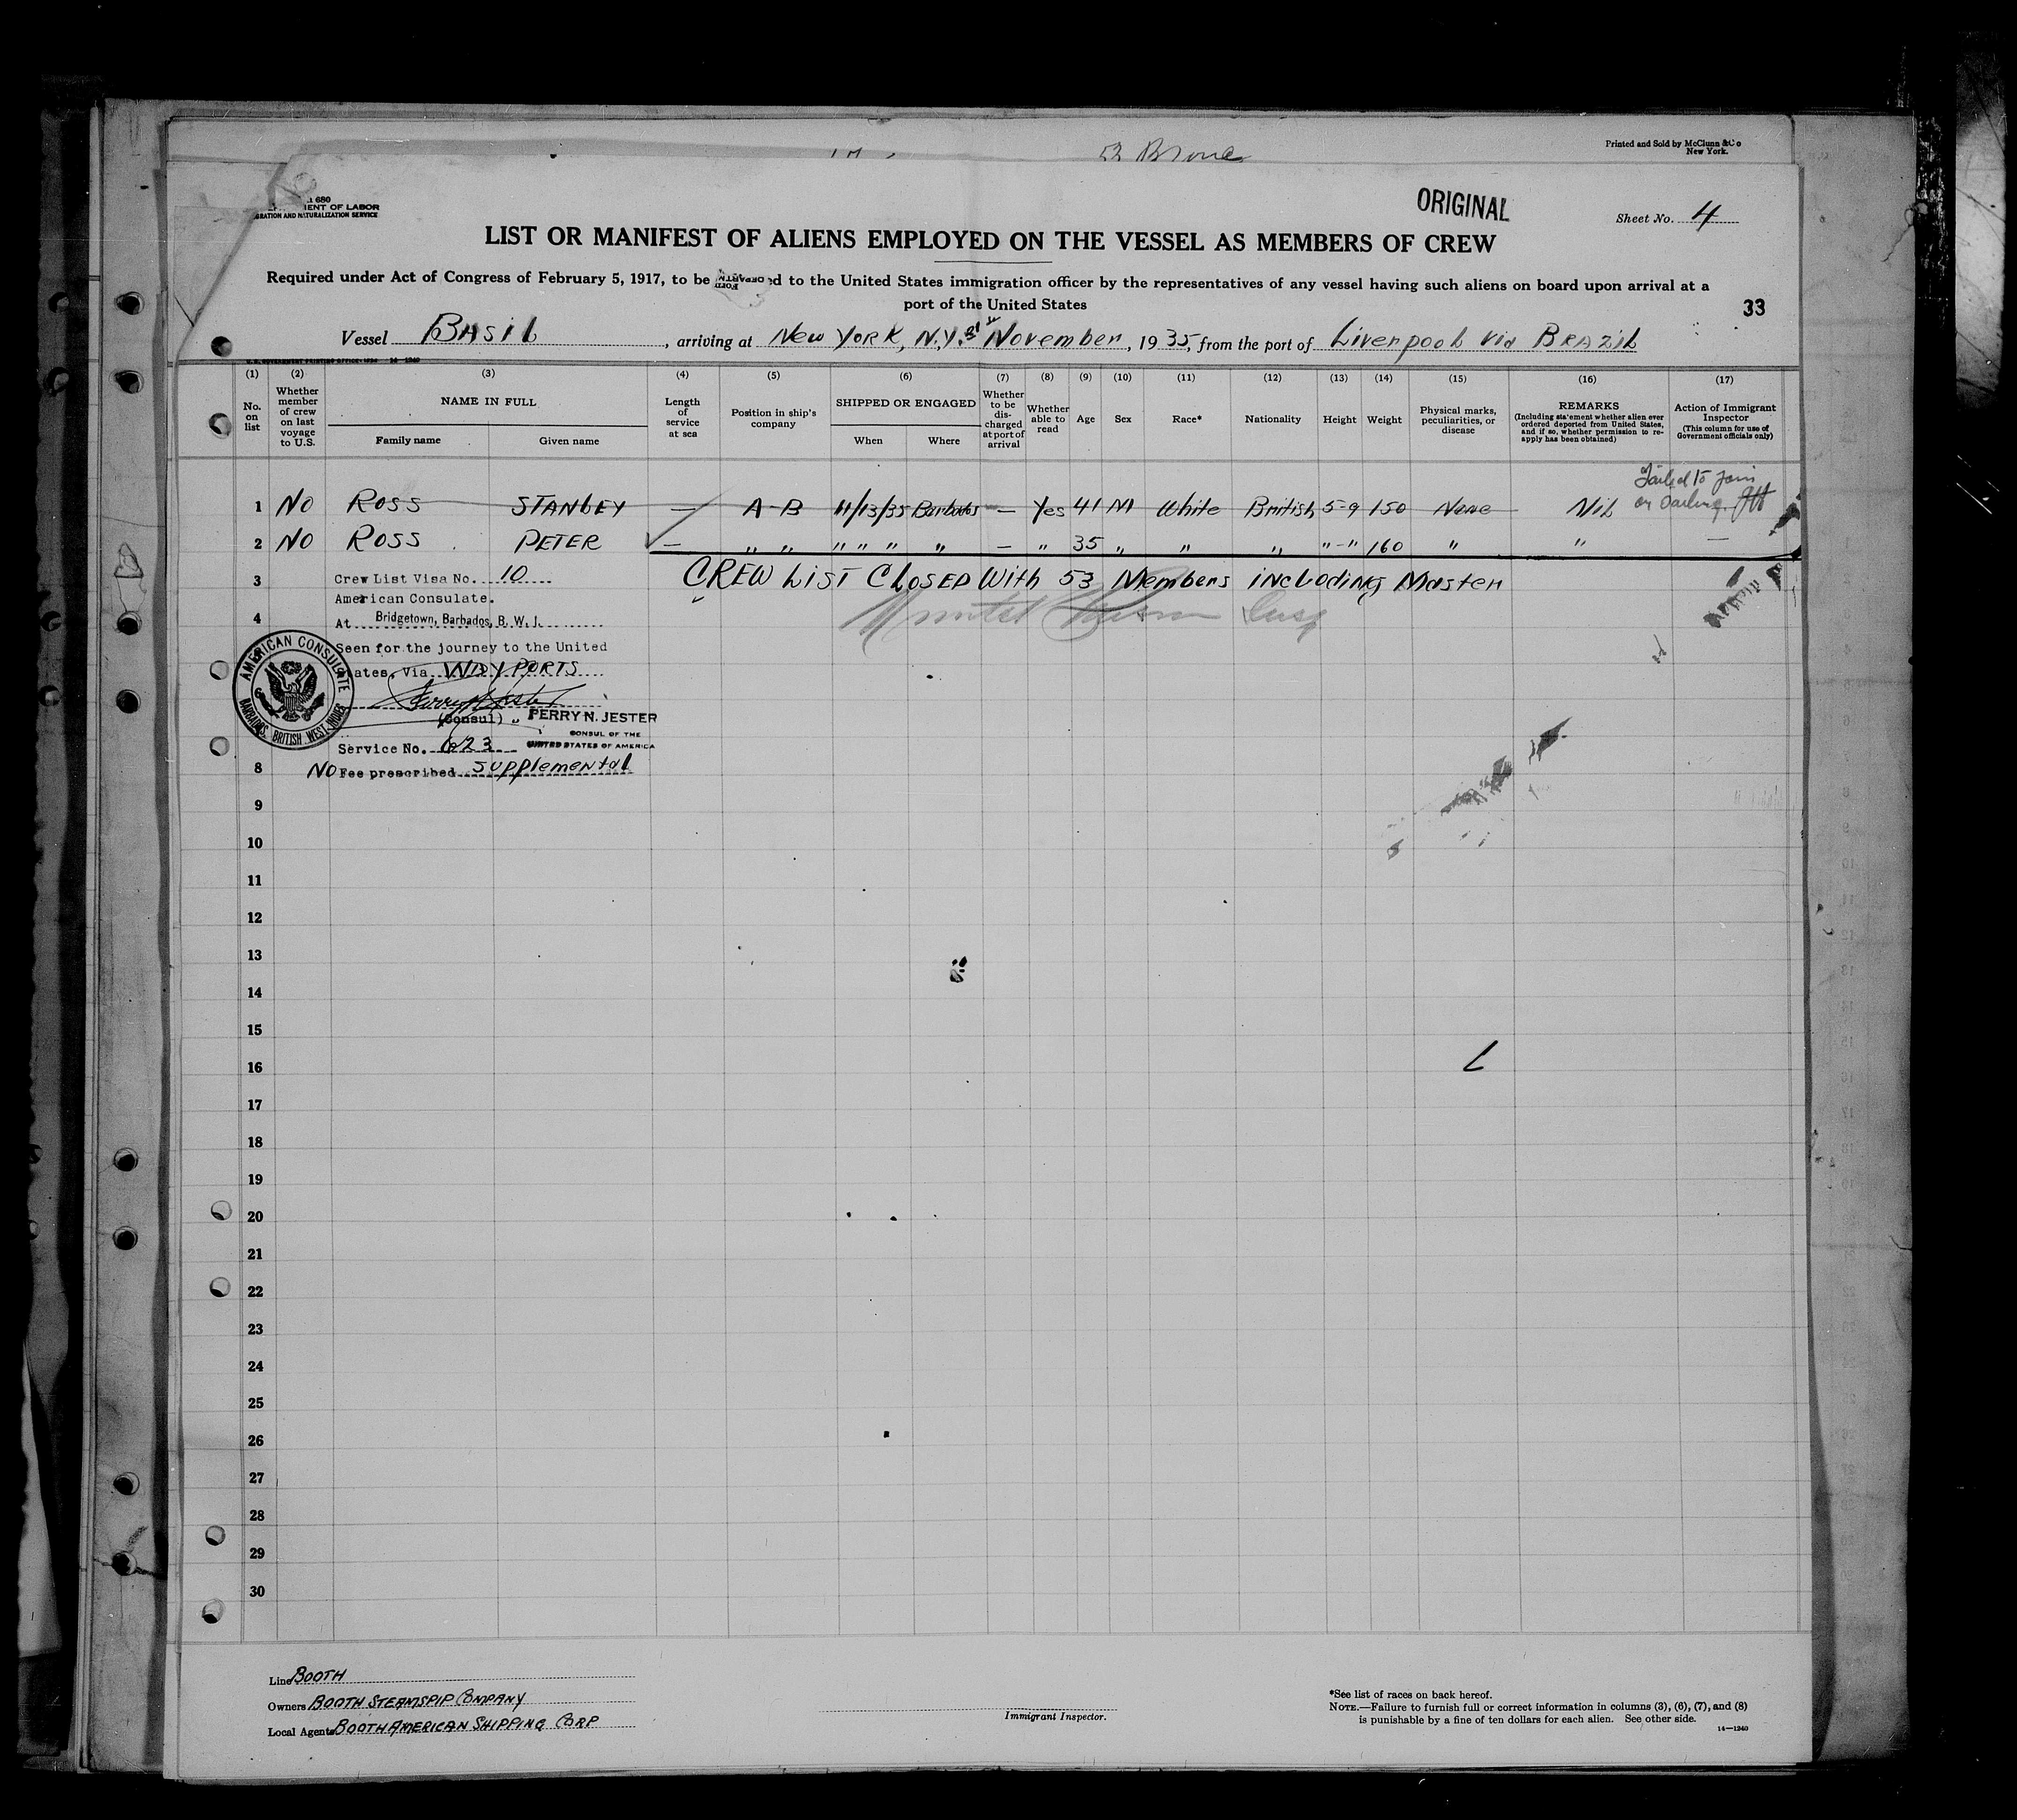 Printed and Sold by McClunn & Co
New York.
ORIGINAL
Sheet No. 4
680
ENT OF LABOR
GRATION AND NATURALIZATION SERVICE
LIST OR MANIFEST OF ALIENS EMPLOYED ON THE VESSEL AS MEMBERS OF CREW
Required under Act of Congress of February 5, 1917, to be d to the United States immigration officer by the representatives of any vessel having such aliens on board upon arrival at a
port of the United States
33
Vessel BASIL, arriving at NEW YORK, N.Y. November, 1935, from the port of Liverpool via BRAZIL
(1) (2) (3) (4) (5) (6) (7) (8) (9) (10) (11) (12) (13) (14) (15) (16) (17)
No. on list
Whether member of crew on last voyage to U.S.
NAME IN FULL
Family name Given name
Length of service at sea
Position in ship's company
SHIPPED OR ENGAGED
When Where
Whether to be discharged at port of arrival
Whether able to read
Age
Sex
Race*
Nationality
Height
Weight
Physical marks, peculiarities, or disease
REMARKS
(Including statement whether alien ever ordered deported from United States, and if so, whether permission to re-apply has been obtained)
Action of Immigrant Inspector
(This column for use of Government officials only)
Failed to Join
on Sailing
1 NO ROSS STANLEY — A-B 11/13/35 Barbados — Yes 41 M White British 5-9 150 None Nil
2 NO ROSS PETER — " " " " " " — " 35 " " " "-" 160 " " —
3 CREW LIST CLOSED With 53 Members including Master
Crew List Visa No. 10
American Consulate.
4
At Bridgetown, Barbados, B. W. I.
Seen for the journey to the United
States, Via WAY PORTS
AMERICAN CONSULATE
BARBADOS, BRITISH WEST INDIES
(Consul)
PERRY N. JESTER
CONSUL OF THE
UNITED STATES OF AMERICA
Service No. 623
8 NO Fee prescribed supplemental
9
10
11
12
13
14
15
16
17
18
19
20
21
22
23
24
25
26
27
28
29
30
Line BOOTH
Owners BOOTH STEAMSPIP COMPANY
Local Agents BOOTH AMERICAN SHIPPING CORP
Immigrant Inspector.
*See list of races on back hereof.
NOTE.—Failure to furnish full or correct information in columns (3), (6), (7), and (8)
is punishable by a fine of ten dollars for each alien. See other side.
14—1240